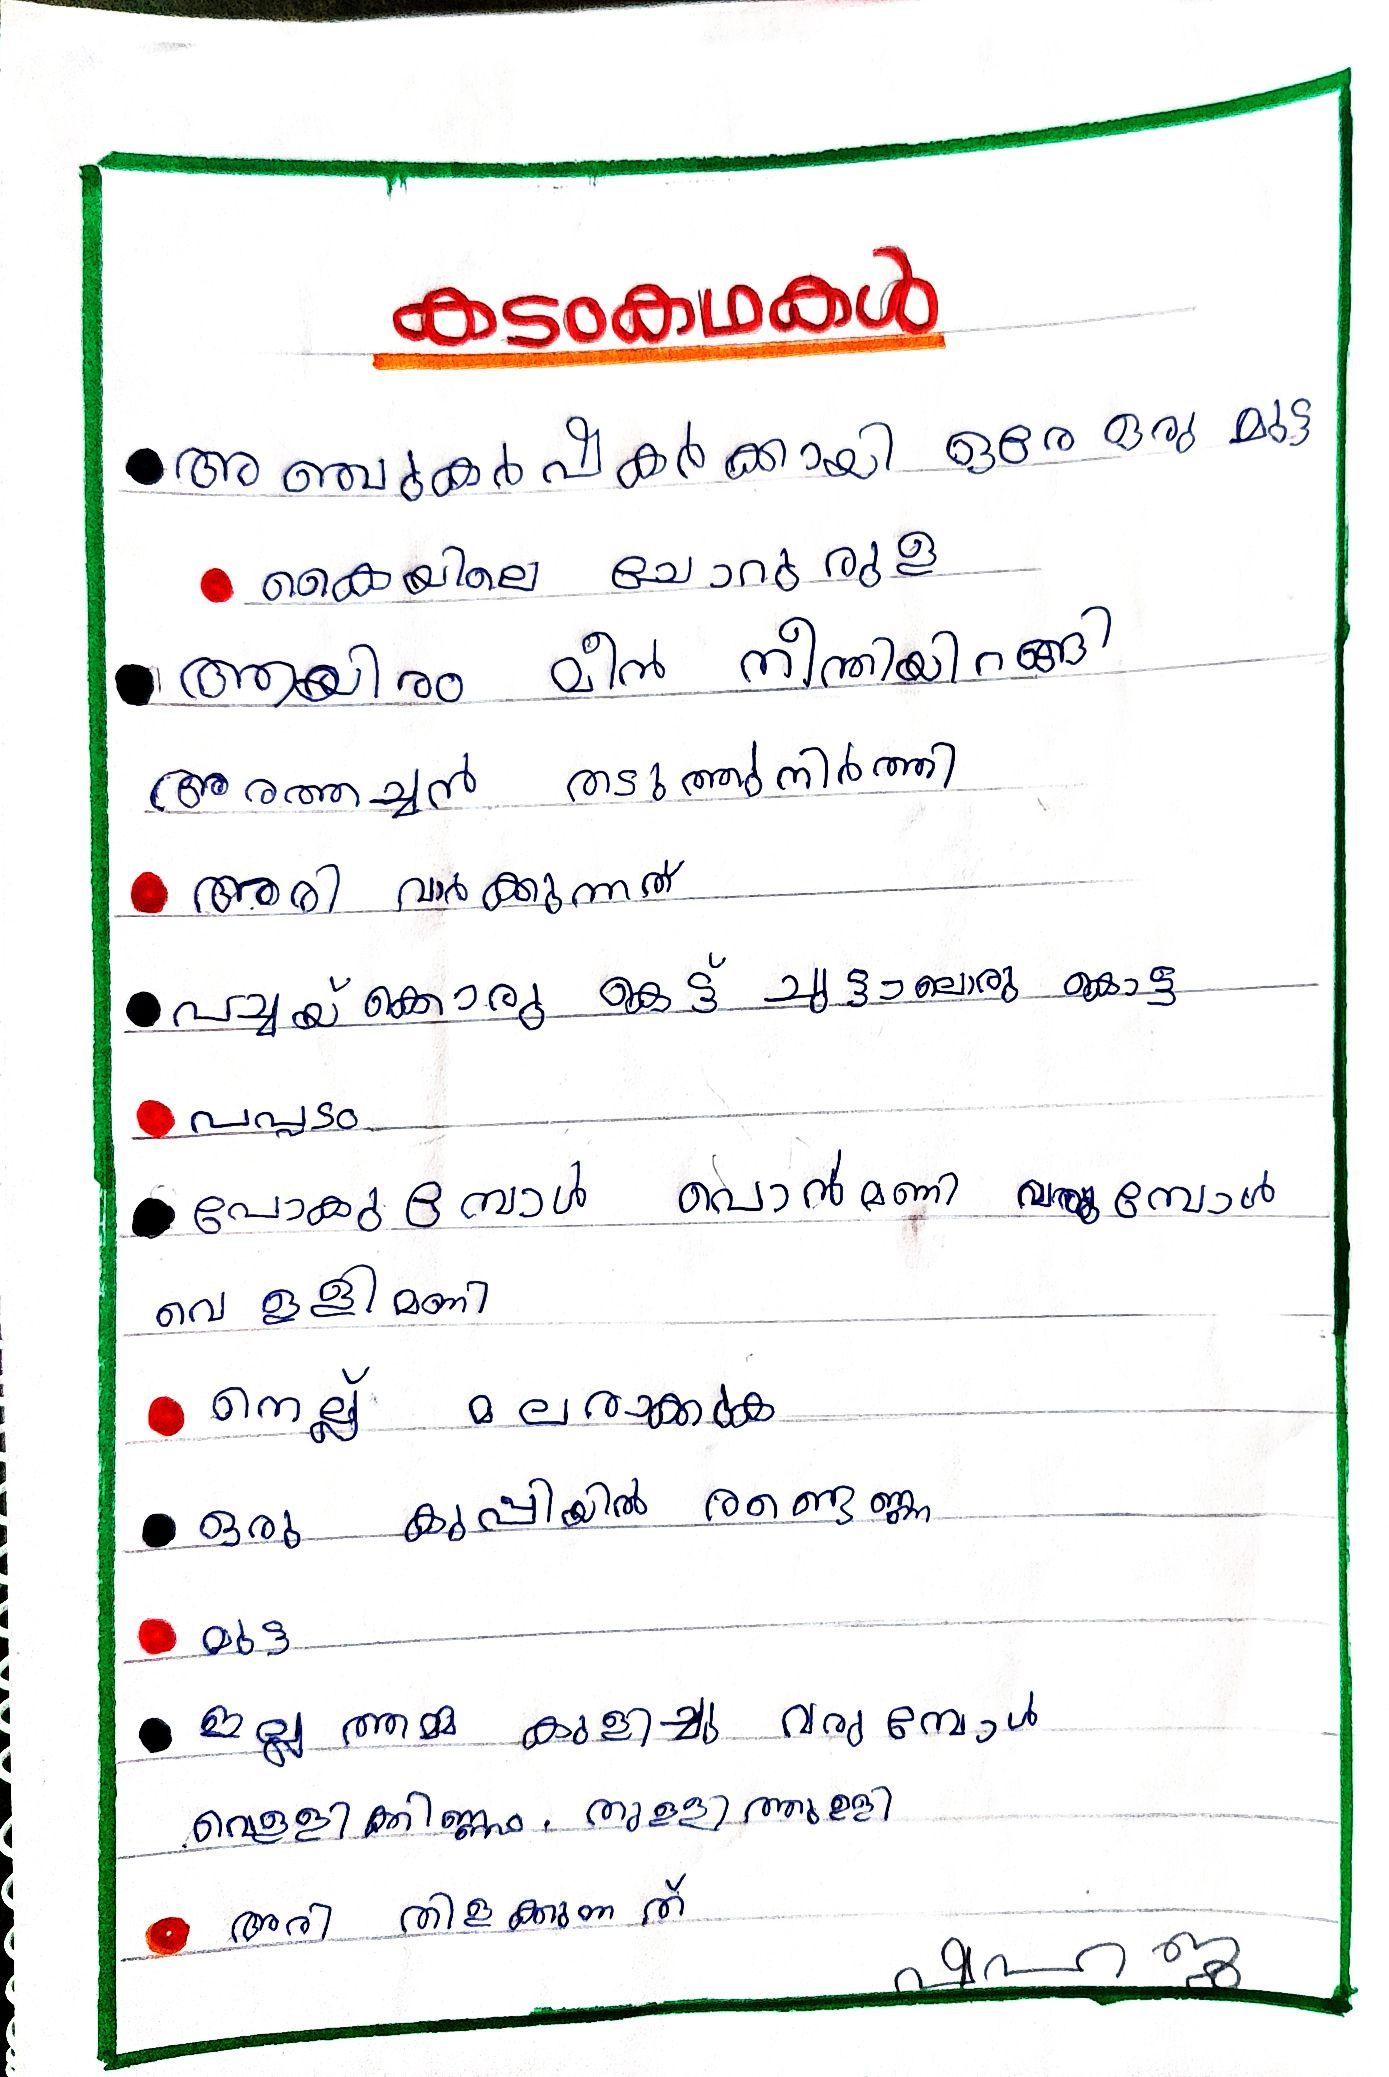 കടംകഥകൾ
അഞ്ചുകർഷകർക്കായി ഒരേ ഒരു മുട്ട
കൈയിലെ ചോറുരുള
ആയിരം മീൻ നീന്തിയിറങ്ങി
അരത്തച്ചൻ തടുത്തുനിർത്തി
അരി വാർക്കുന്നത്
പച്ചയ്ക്കൊരു കെട്ട് ചുട്ടാലൊരു കൊട്ട
പപ്പടം
പോകുമ്പോൾ പൊൻമണി വരുമ്പോൾ
വെള്ളിമണി
നെല്ല് മലരാക്കുക
ഒരു കുപ്പിയിൽ രണ്ടെണ്ണ
മുട്ട
ഇല്ലത്തമ്മ കുളിച്ചു വരുമ്പോൾ
വെള്ളിക്കിണ്ണം. തുള്ളിത്തുള്ളി
അരി തിളക്കുന്നത്